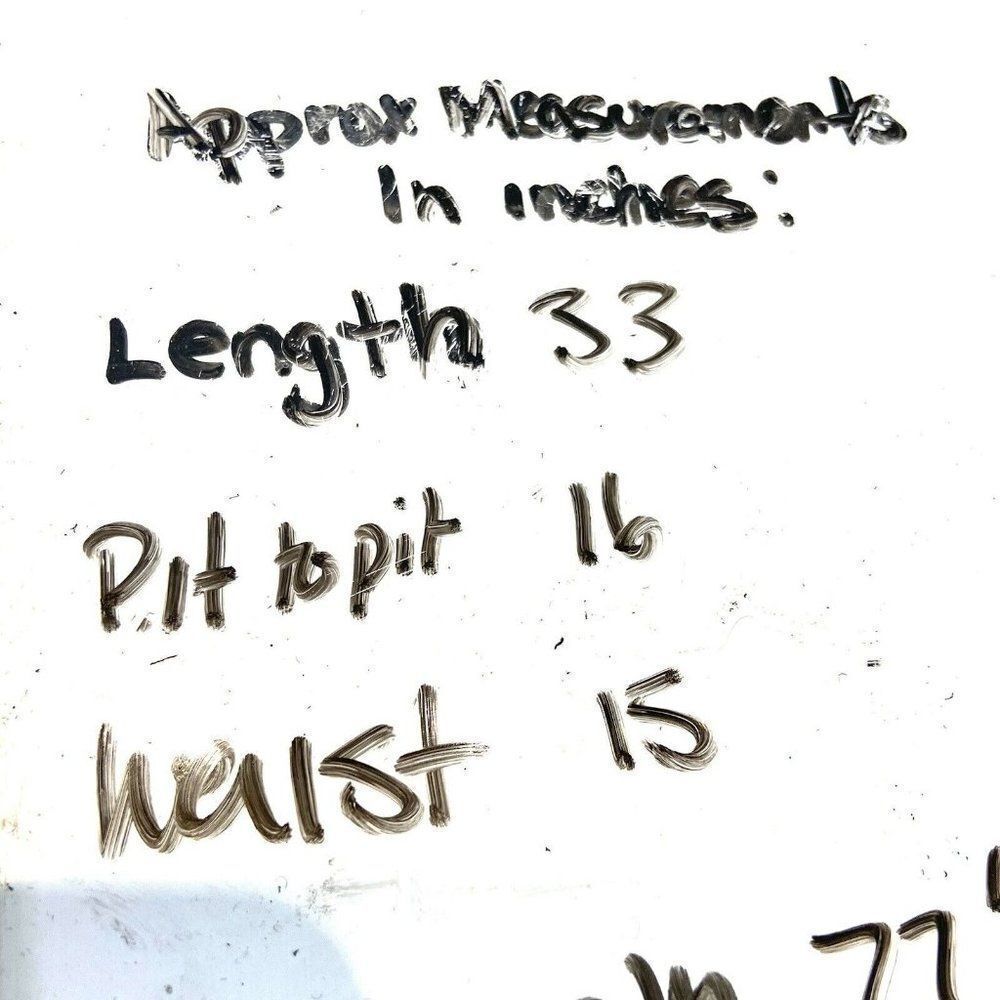 Approx Measurements
In inches:
Length 33
Pit to pit 16
Waist 15